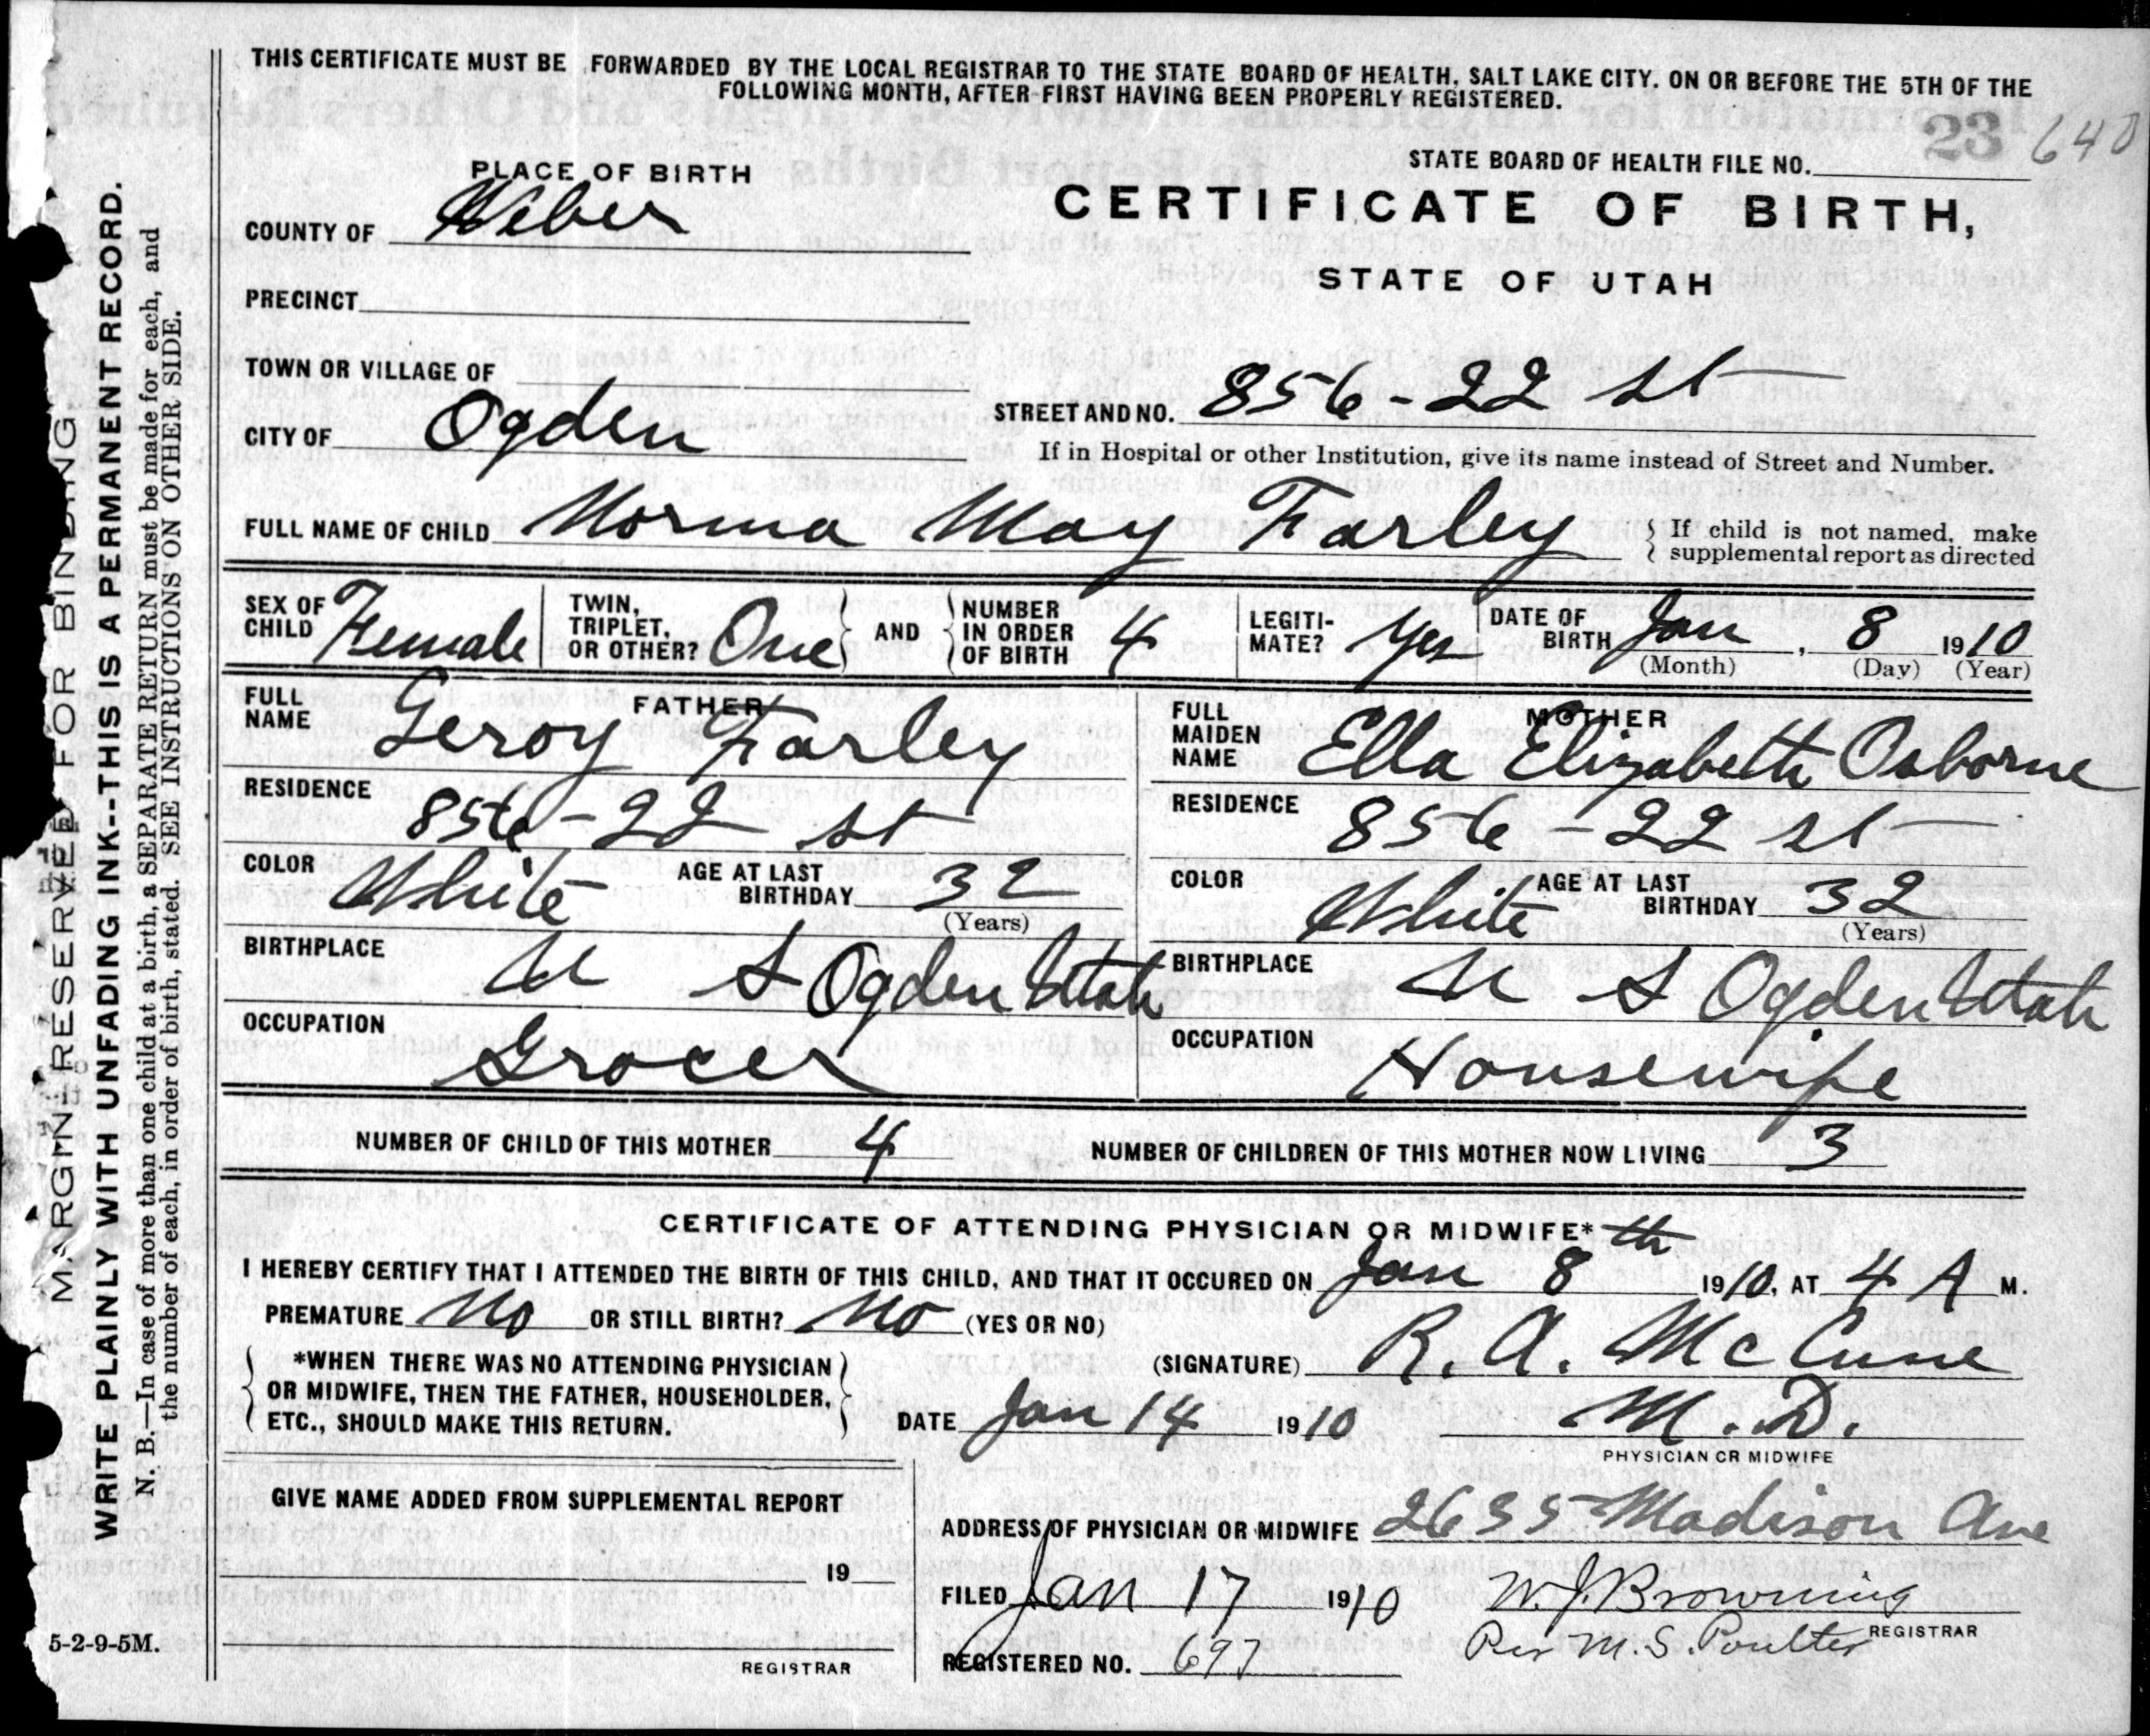 THIS CERTIFICATE MUST BE FORWARDED BY THE LOCAL REGISTRAR TO THE STATE BOARD OF HEALTH, SALT LAKE CITY, ON OR BEFORE THE 5TH OF THE
FOLLOWING MONTH, AFTER FIRST HAVING BEEN PROPERLY REGISTERED.
23 640
STATE BOARD OF HEALTH FILE NO.
PLACE OF BIRTH
CERTIFICATE OF BIRTH,
COUNTY OF Weber
STATE OF UTAH
PRECINCT
TOWN OR VILLAGE OF
STREET AND NO. 856-22 St
CITY OF Ogden
If in Hospital or other Institution, give its name instead of Street and Number.
FULL NAME OF CHILD Norma May Farley
If child is not named, make
supplemental report as directed
SEX OF CHILD Female
TWIN, TRIPLET, OR OTHER? One AND NUMBER IN ORDER OF BIRTH 4
LEGITI-MATE? Yes
DATE OF BIRTH Jan, 8 1910
(Month) (Day) (Year)
FATHER
FULL NAME Leroy Farley
RESIDENCE 856-22 St
COLOR White AGE AT LAST BIRTHDAY 32
(Years)
BIRTHPLACE U S Ogden Utah
OCCUPATION Grocer
MOTHER
FULL MAIDEN NAME Ella Elizabeth Osborne
RESIDENCE 856-22 St
COLOR White AGE AT LAST BIRTHDAY 32
(Years)
BIRTHPLACE U S Ogden Utah
OCCUPATION Housewife
NUMBER OF CHILD OF THIS MOTHER 4 NUMBER OF CHILDREN OF THIS MOTHER NOW LIVING 3
CERTIFICATE OF ATTENDING PHYSICIAN OR MIDWIFE*
I HEREBY CERTIFY THAT I ATTENDED THE BIRTH OF THIS CHILD, AND THAT IT OCCURED ON Jan 8th 1910, AT 4 A M.
PREMATURE No OR STILL BIRTH? No (YES OR NO)
*WHEN THERE WAS NO ATTENDING PHYSICIAN
OR MIDWIFE, THEN THE FATHER, HOUSEHOLDER,
ETC., SHOULD MAKE THIS RETURN.
(SIGNATURE) R. A. McCune
DATE Jan 14 1910 M. D.
PHYSICIAN OR MIDWIFE
GIVE NAME ADDED FROM SUPPLEMENTAL REPORT
19
REGISTRAR
ADDRESS OF PHYSICIAN OR MIDWIFE 2635 Madison Ave
FILED Jan 17 1910 W. J. Browning
REGISTRAR
Per M. S. Poulter
REGISTERED NO. 697
MARGIN RESERVED FOR BINDING
WRITE PLAINLY WITH UNFADING INK--THIS IS A PERMANENT RECORD.
N. B.—In case of more than one child at a birth, a SEPARATE RETURN must be made for each, and
the number of each, in order of birth, stated. SEE INSTRUCTIONS ON OTHER SIDE.
5-2-9-5M.